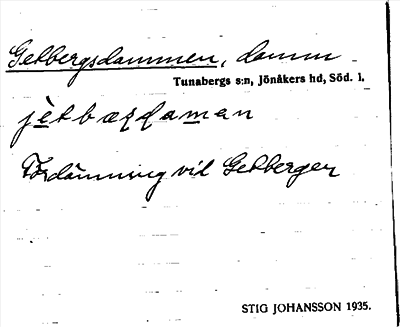 Getbergsdammen, damm
Tunabergs s:n, Jönåkers hd, Söd. l.
Fördämning vid Getbergen
STIG JOHANSSON 1935.